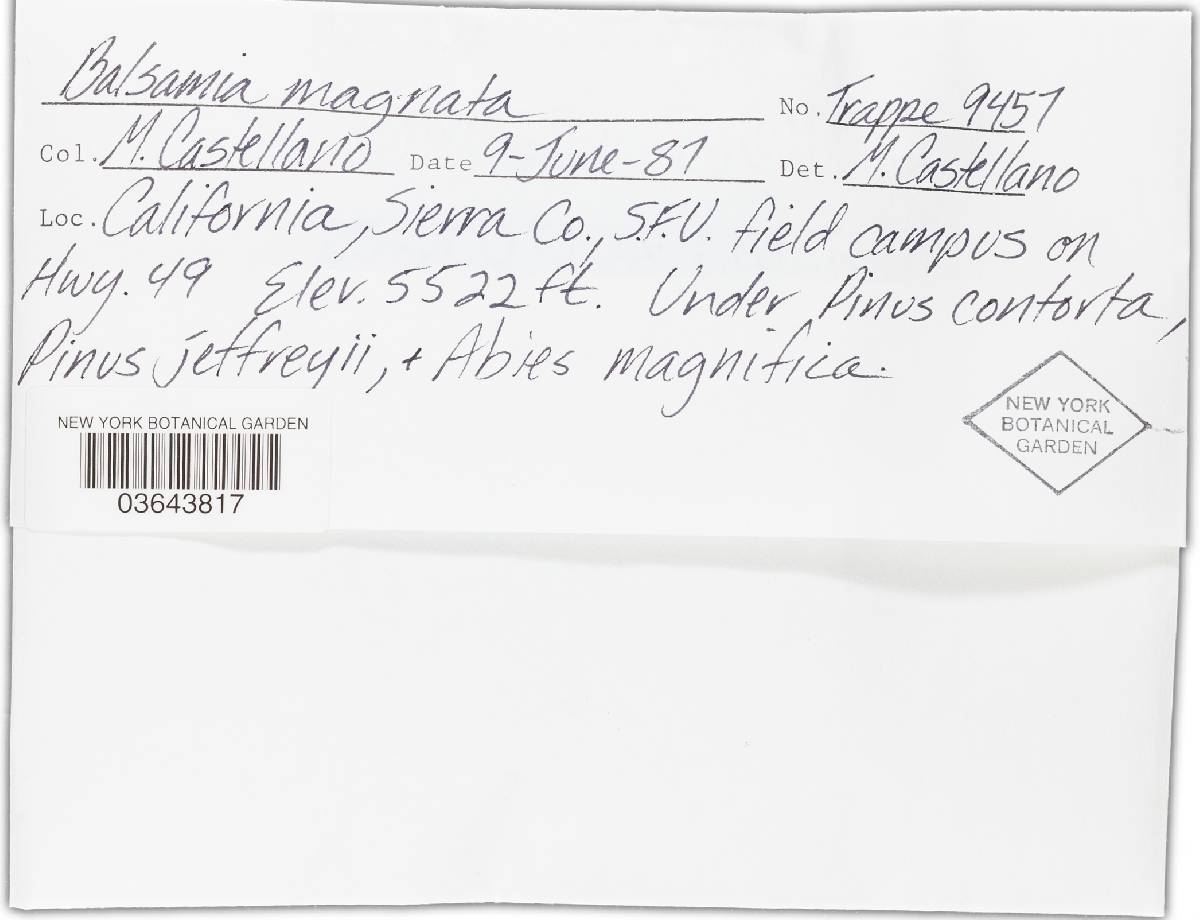 Balsamia magnata No. Trappe 9457
Col. M. Castellano Date 9-June-87 Det. M. Castellano
Loc. California, Sierra Co., S.F.U. field campus on
Hwy. 49 Elev. 5522 ft. Under Pinus contorta,
Pinus jeffreyii, + Abies magnifica.
NEW YORK BOTANICAL GARDEN
03643817
NEW YORK
BOTANICAL
GARDEN